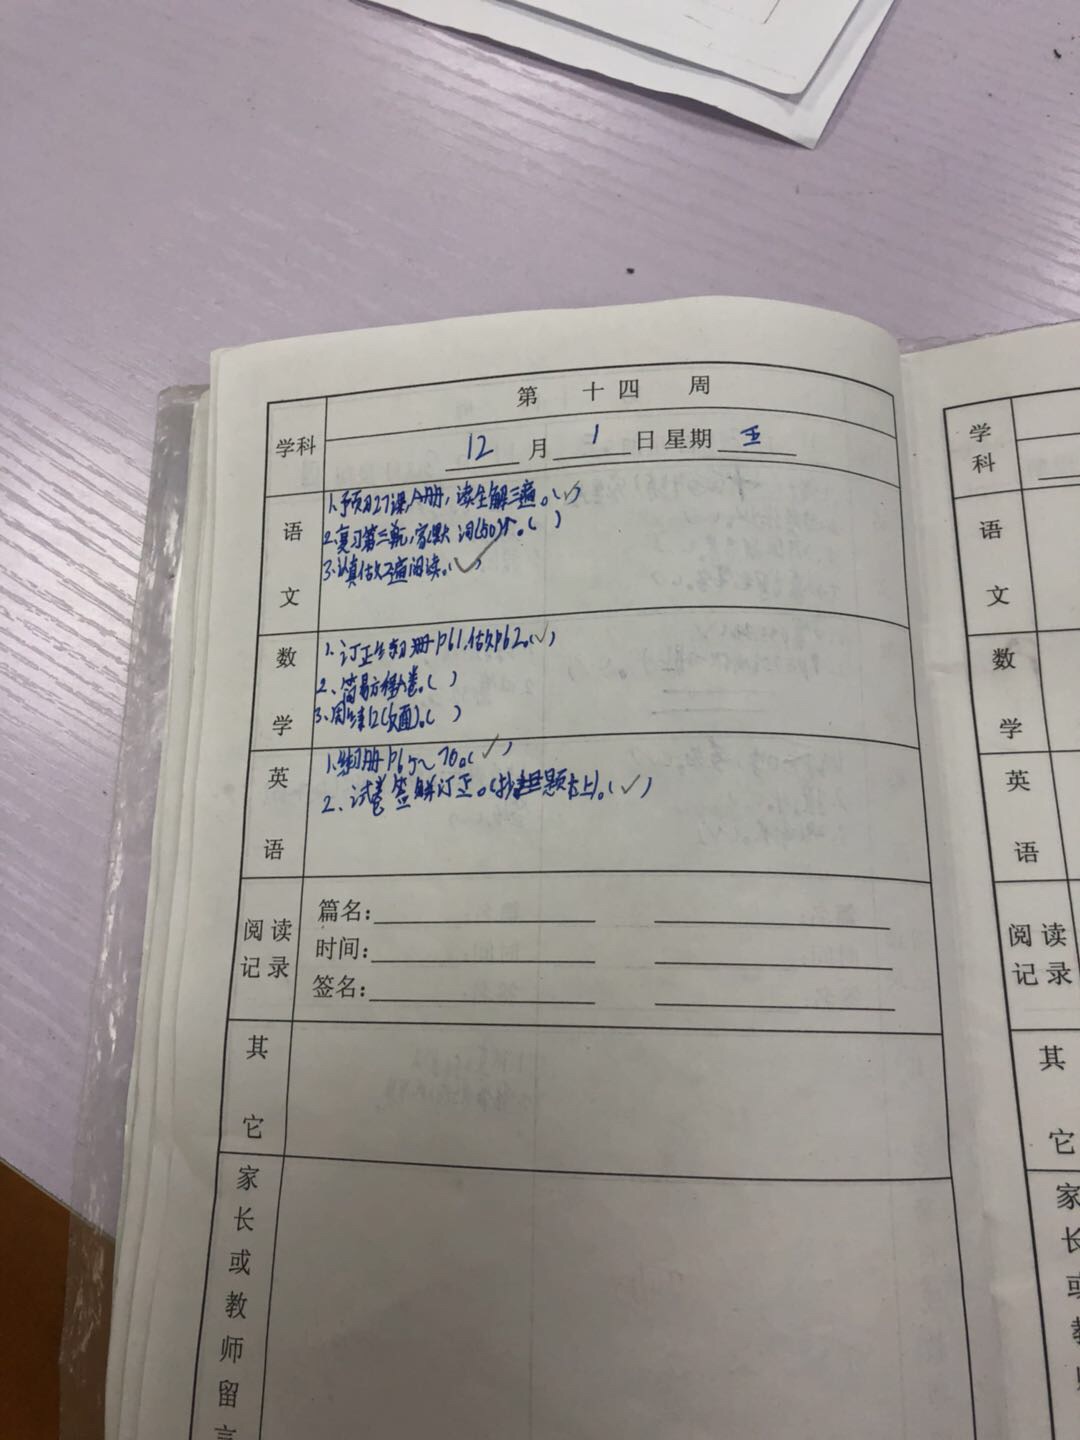 第 十四 周
学科
12 月 1 日 星期 五
语文
1.予项习27课,A册,读全解三遍。(√)
2.复习第三单元,家默 词(50)个。( )
3.认真做2遍阅读。(√)
数学
1、订正练习册P61.做P62。(√)
2、简易方程A卷。( )
3、周练12(反面)。( )
英语
1.练习册P65~70。(√)
2、试卷签字订正。(抄错题本上)。(√)
阅读记录
篇名:
时间:
签名:
其它
家长或教师留言
学科
语文
数学
英语
阅读记录
其它
家长或教